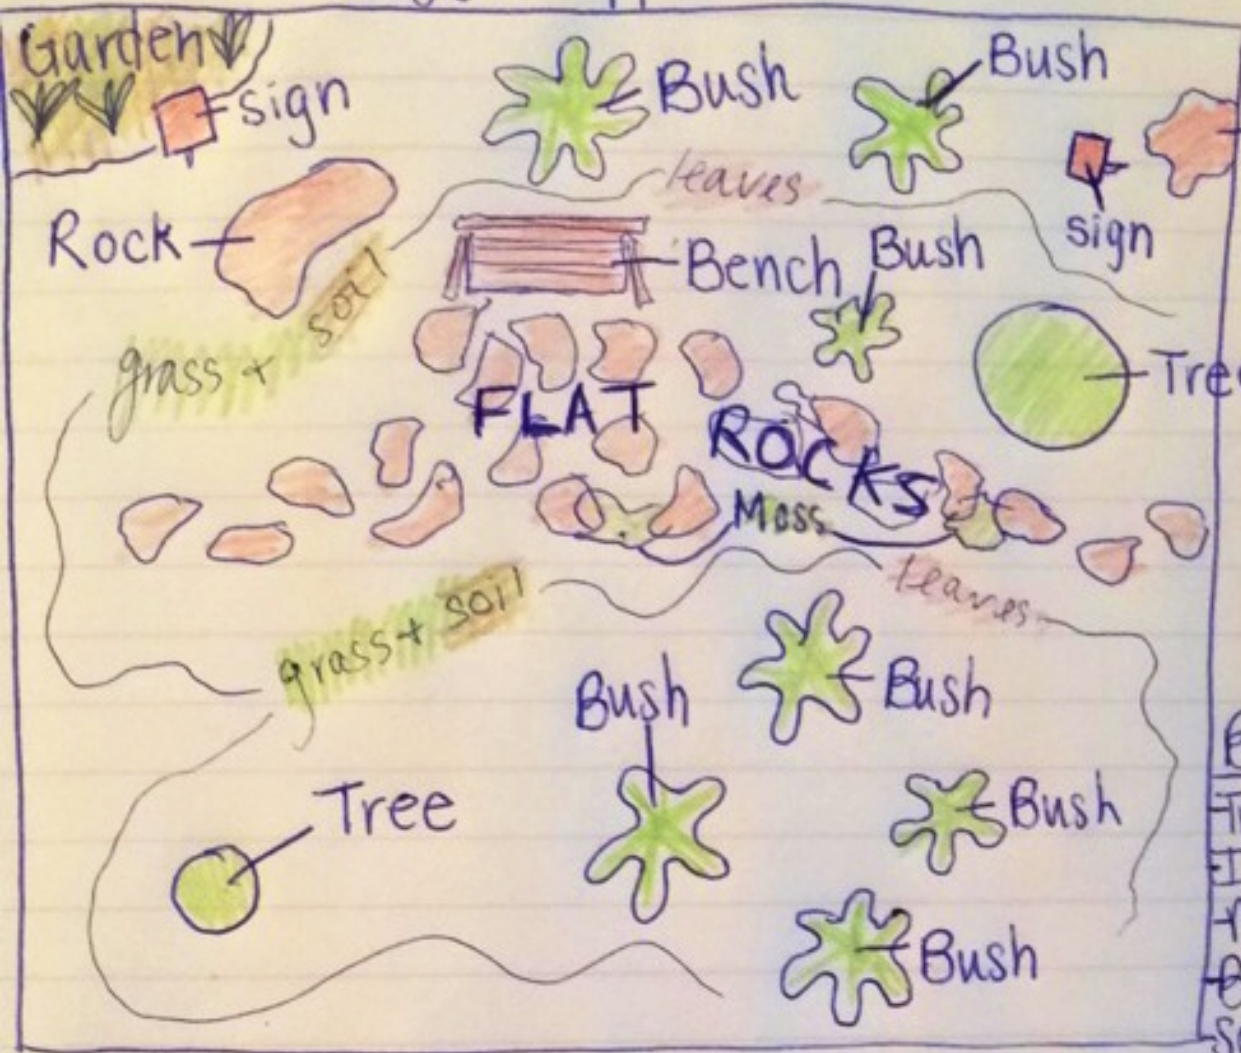 Garden
sign
Bush
Bush
leaves
sign
Rock
Bench
Bush
soil
grass +
Tre
FLAT
ROCKS
Moss
leaves
grass + soil
Bush
Bush
Tree
Bush
Bush